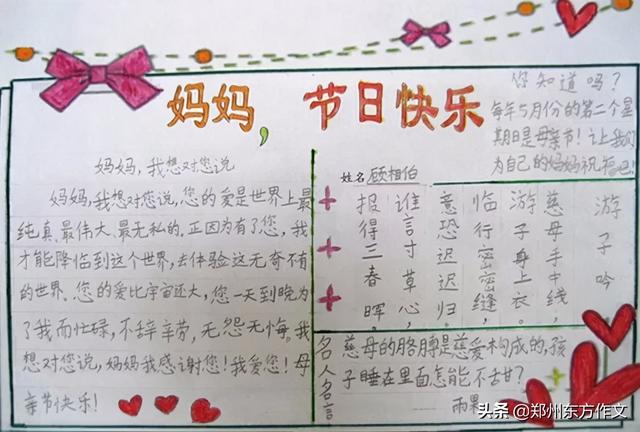 妈妈，节日快乐
你知道吗？
每年5月份的第二个星
期日是母亲节！让我们
为自己的妈妈祝福吧！
妈妈，我想对您说
妈妈，我想对您说，您的爱是世界上最
纯真、最伟大、最无私的。正因为有了您，我
才能降临到这个世界，去体验这无奇不有
的世界。您的爱比宇宙还大，您一天到晚为
了我而忙碌，不辞辛劳，无怨无悔。我
想对您说，妈妈我感谢您！我爱您！母
亲节快乐！
姓名 顾相伯
游子吟
慈母手中线，
游子身上衣。
临行密密缝，
意恐迟迟归。
谁言寸草心，
报得三春晖。
名人名言
慈母的胳膊是慈爱构成的，孩
子睡在里面怎能不甜？
雨果
头条 @郑州东方作文